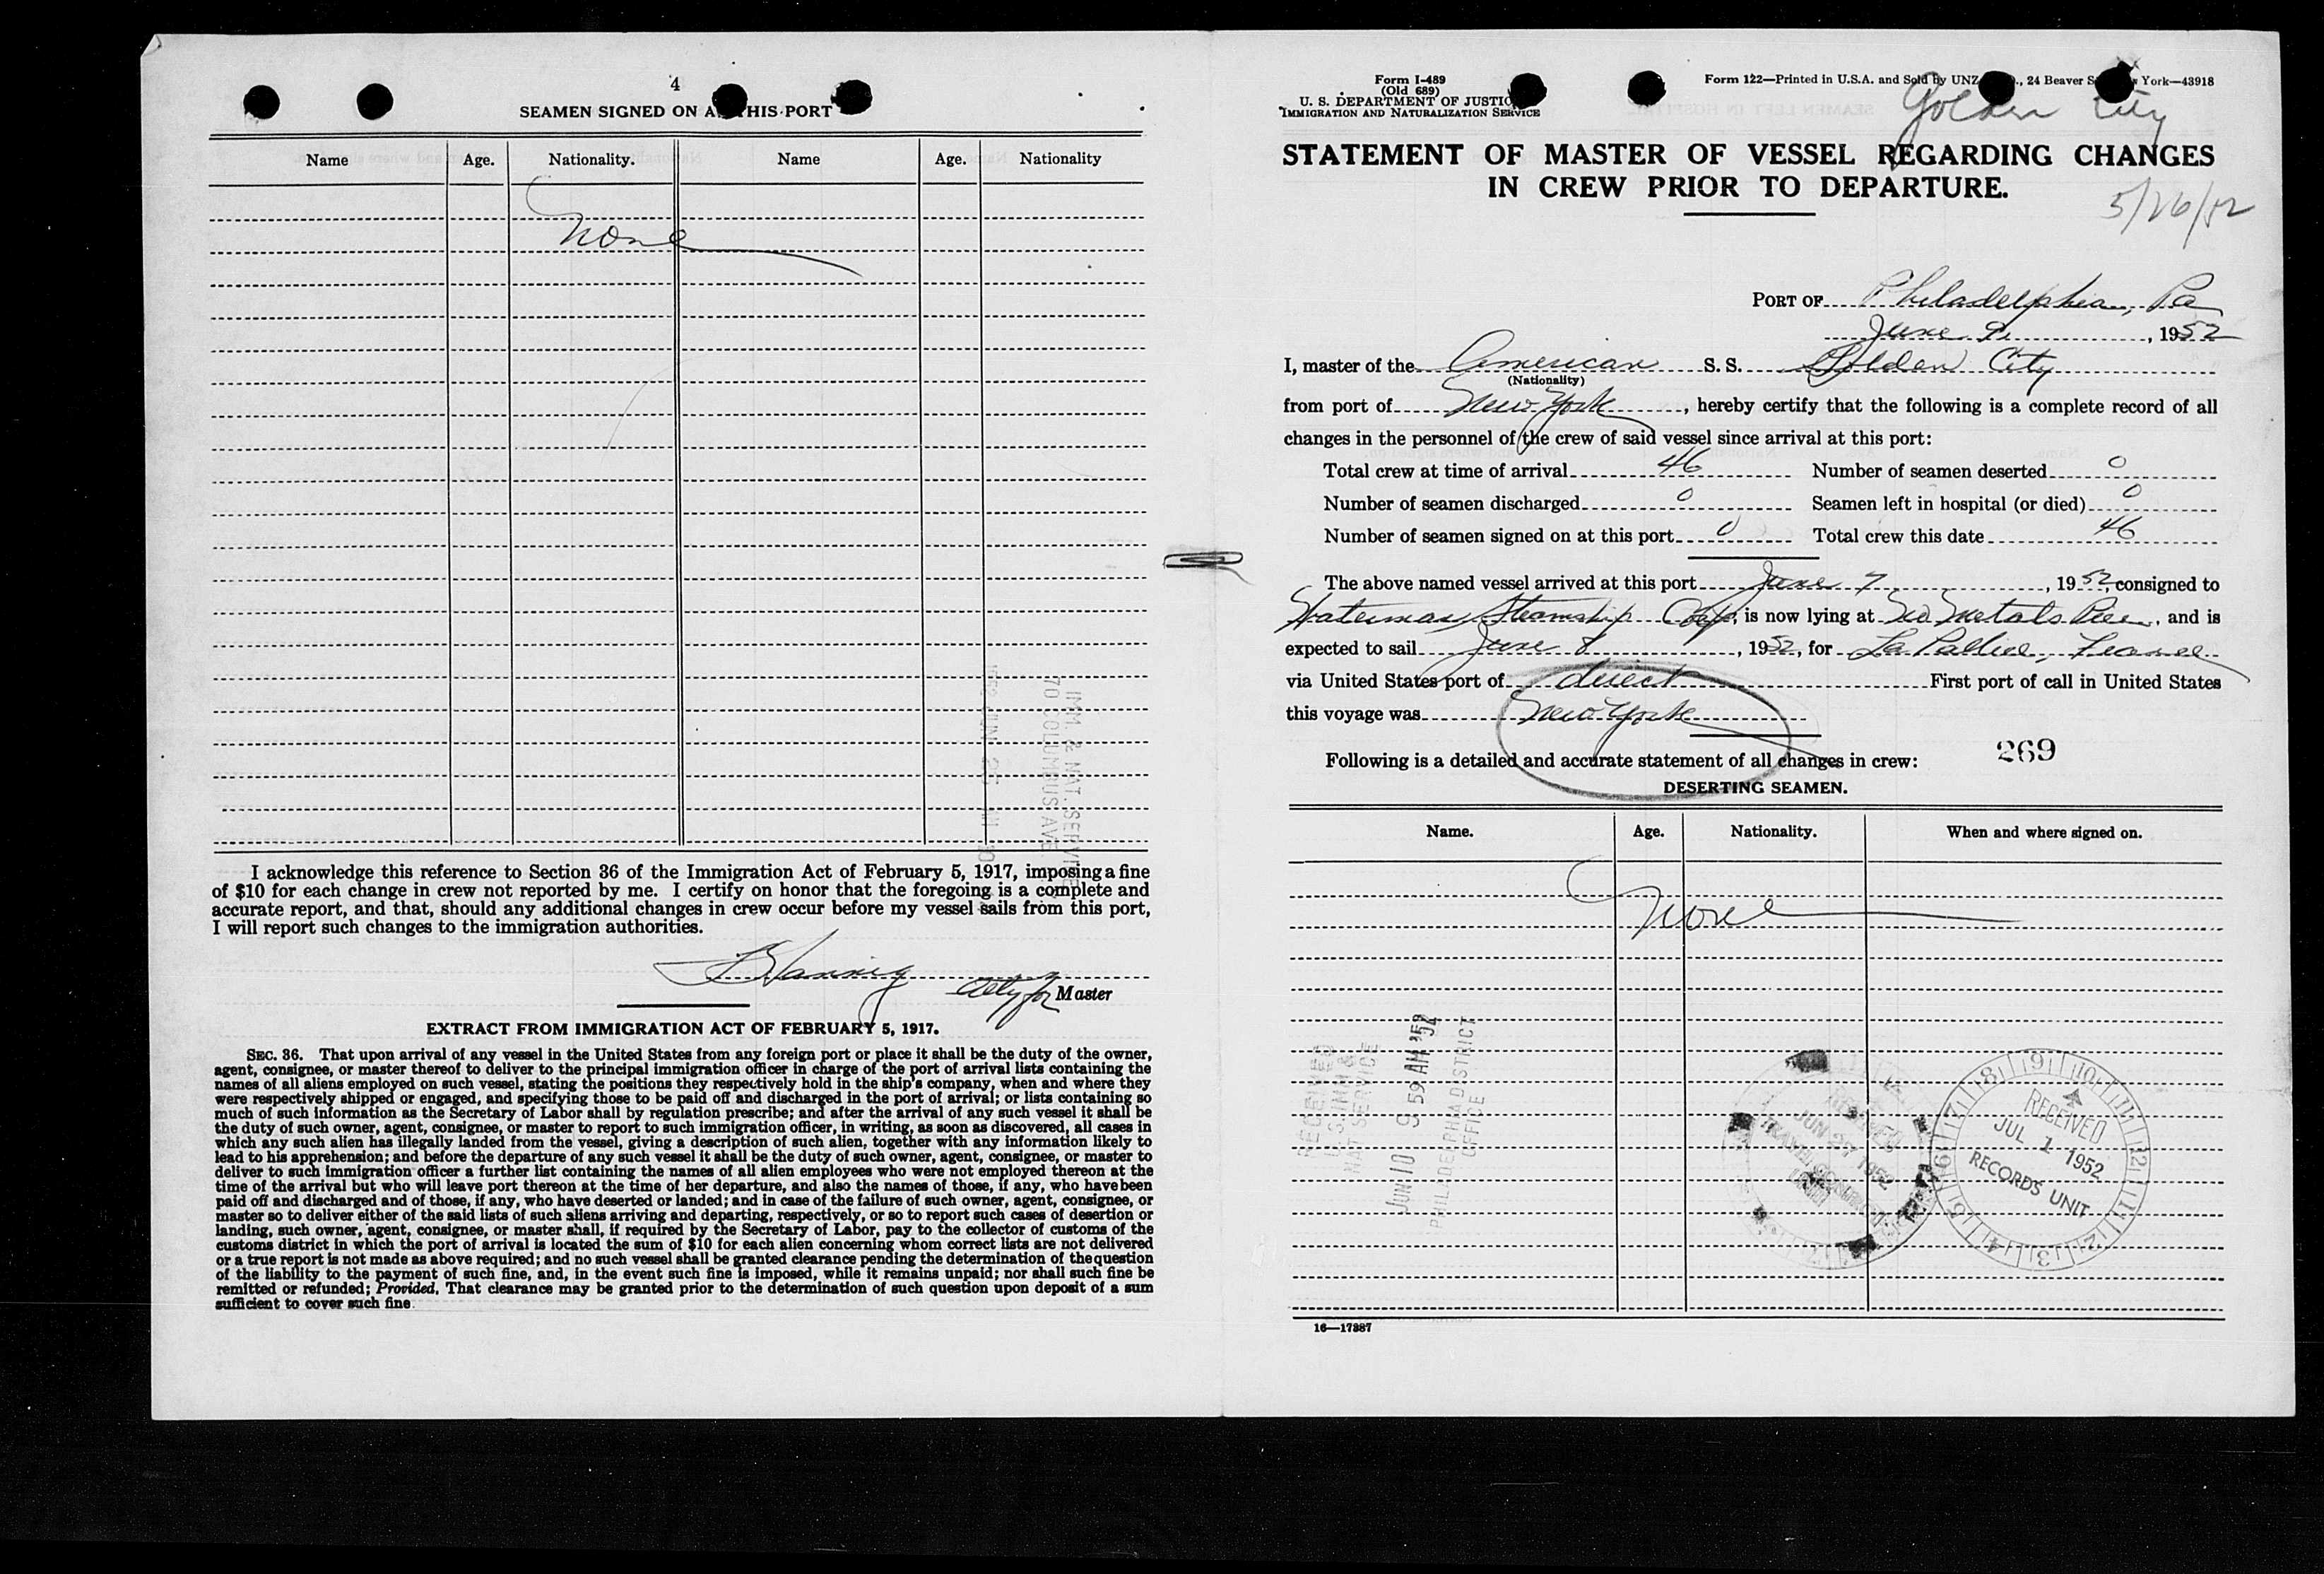 4
SEAMEN SIGNED ON A THIS PORT
Name Age. Nationality. Name Age. Nationality
None
IMM. & NAT. SERVICE
70 COLUMBUS AVE.
1952 JUN 25
I acknowledge this reference to Section 36 of the Immigration Act of February 5, 1917, imposing a fine
of $10 for each change in crew not reported by me. I certify on honor that the foregoing is a complete and
accurate report, and that, should any additional changes in crew occur before my vessel sails from this port,
I will report such changes to the immigration authorities.
atty for Master
EXTRACT FROM IMMIGRATION ACT OF FEBRUARY 5, 1917.
SEC. 36. That upon arrival of any vessel in the United States from any foreign port or place it shall be the duty of the owner,
agent, consignee, or master thereof to deliver to the principal immigration officer in charge of the port of arrival lists containing the
names of all aliens employed on such vessel, stating the positions they respectively hold in the ship's company, when and where they
were respectively shipped or engaged, and specifying those to be paid off and discharged in the port of arrival; or lists containing so
much of such information as the Secretary of Labor shall by regulation prescribe; and after the arrival of any such vessel it shall be
the duty of such owner, agent, consignee, or master to report to such immigration officer, in writing, as soon as discovered, all cases in
which any such alien has illegally landed from the vessel, giving a description of such alien, together with any information likely to
lead to his apprehension; and before the departure of any such vessel it shall be the duty of such owner, agent, consignee, or master to
deliver to such immigration officer a further list containing the names of all alien employees who were not employed thereon at the
time of the arrival but who will leave port thereon at the time of her departure, and also the names of those, if any, who have been
paid off and discharged and of those, if any, who have deserted or landed; and in case of the failure of such owner, agent, consignee, or
master so to deliver either of the said lists of such aliens arriving and departing, respectively, or so to report such cases of desertion or
landing, such owner, agent, consignee, or master shall, if required by the Secretary of Labor, pay to the collector of customs of the
customs district in which the port of arrival is located the sum of $10 for each alien concerning whom correct lists are not delivered
or a true report is not made as above required; and no such vessel shall be granted clearance pending the determination of the question
of the liability to the payment of such fine, and, in the event such fine is imposed, while it remains unpaid; nor shall such fine be
remitted or refunded; Provided, That clearance may be granted prior to the determination of such question upon deposit of a sum
sufficient to cover such fine.
Form I-489
(Old 689)
U. S. DEPARTMENT OF JUSTICE
IMMIGRATION AND NATURALIZATION SERVICE
Form 122—Printed in U.S.A. and Sold by UNZ ., 24 Beaver S York—43918
Golden City
STATEMENT OF MASTER OF VESSEL REGARDING CHANGES
IN CREW PRIOR TO DEPARTURE.
5/26/52
PORT OF Philadelphia, Pa
June 9, 1952
I, master of the American S. S. Golden City
(Nationality)
from port of New York, hereby certify that the following is a complete record of all
changes in the personnel of the crew of said vessel since arrival at this port:
Total crew at time of arrival 46 Number of seamen deserted 0
Number of seamen discharged 0 Seamen left in hospital (or died) 0
Number of seamen signed on at this port 0 Total crew this date 46
The above named vessel arrived at this port June 7, 1952, consigned to
Waterman Steamship Corp, is now lying at Metals Pier, and is
expected to sail June 8, 1952, for La Pallice, France
via United States port of direct First port of call in United States
this voyage was New York
Following is a detailed and accurate statement of all changes in crew:
269
DESERTING SEAMEN.
Name. Age. Nationality. When and where signed on.
None
RECEIVED
U.S. IMM &
NAT SERVICE
JUN 10 9 59 AM '52
PHILADELPHIA DISTRICT
OFFICE
RECEIVED
JUN 27 1952
TRAVEL CONTROL
UNIT
RECEIVED
JUL 1 1952
RECORDS UNIT
16—17887